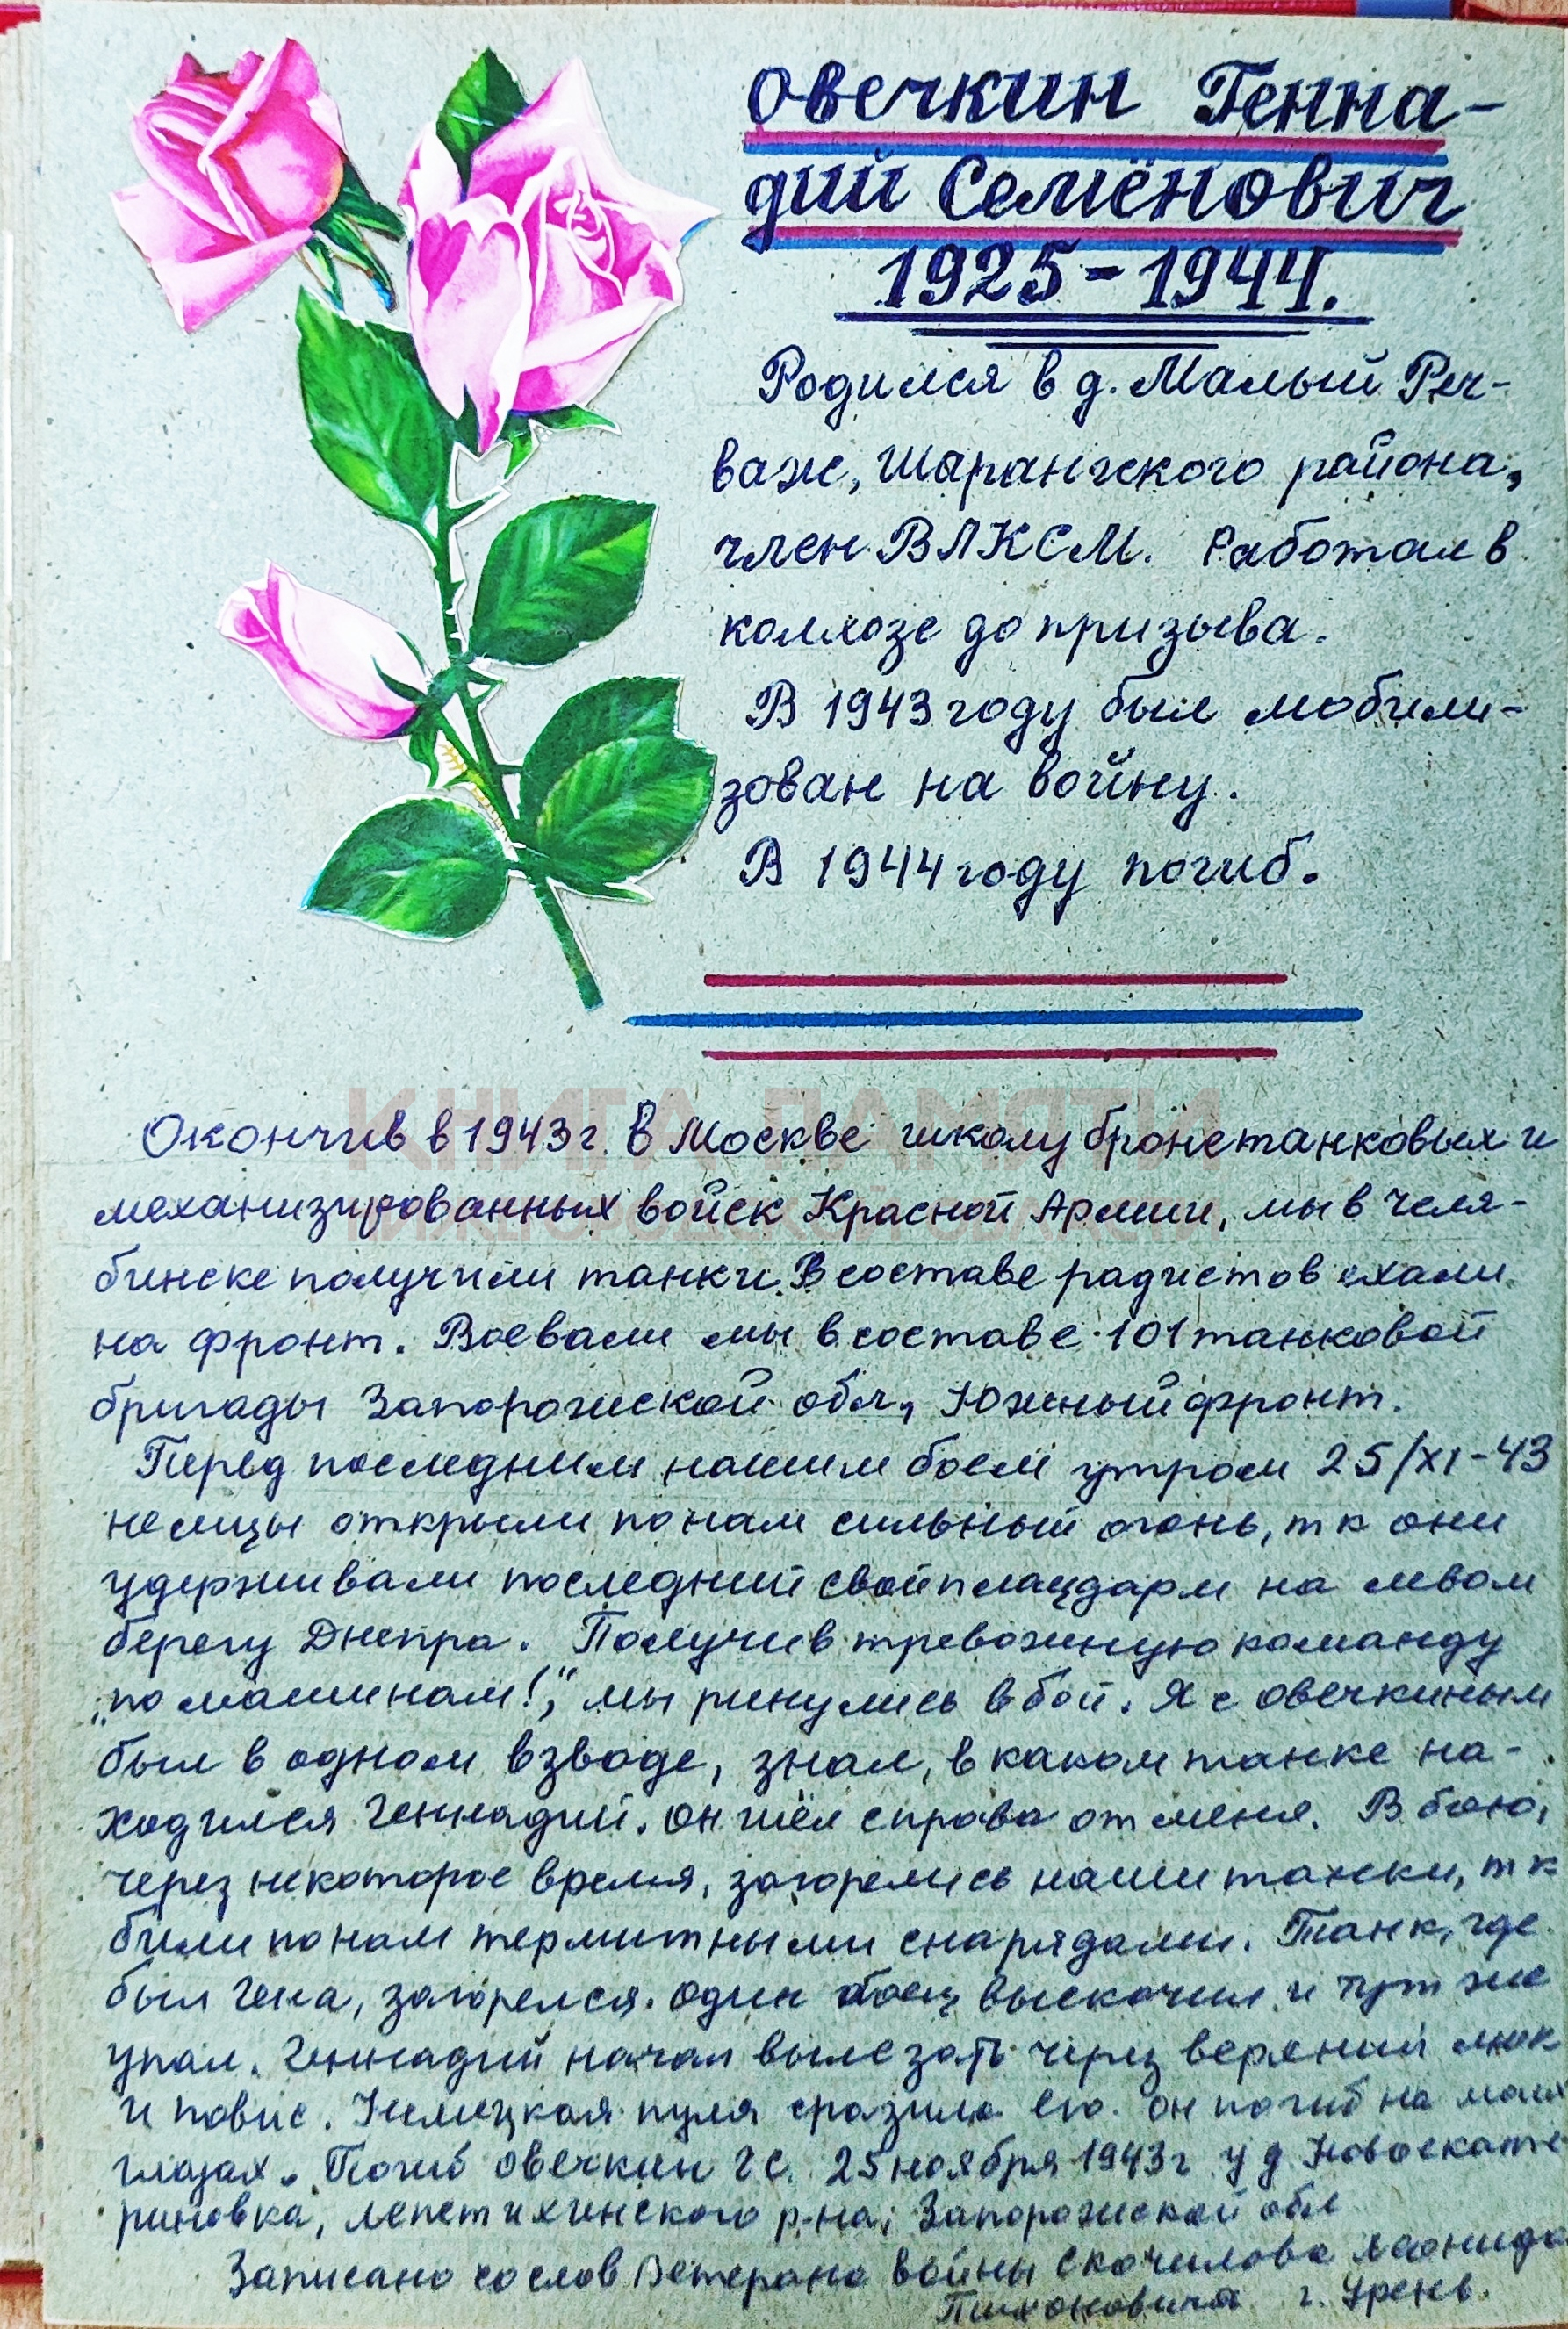 Овечкин Генна-
дий Семёнович
1925-1944.
Родился в д. Малый Реч-
важ, Шарангского района,
член ВЛКСМ. Работал в
колхозе до призыва.
В 1943 году был мобили-
зован на войну.
В 1944 году погиб.
КНИГА ПАМЯТИ
НИЖЕГОРОДСКОЙ ОБЛАСТИ
Окончив в 1943 г. в Москве школу бронетанковых и
механизированных войск Красной Армии, мы в Челя-
бинске получили танки. В составе радистов ехали
на фронт. Воевали мы в составе 101 танковой
бригады Запорожской обл, Южный фронт.
Перед последним нашим боем утром 25/XI-43
немцы открыли по нам сильный огонь, т к они
удерживали последний свой плацдарм на левом
берегу Днепра. Получив тревожную команду
„по машинам!", мы ринулись в бой. Я с Овечкиным
был в одном взводе, знал, в каком танке на-
ходился Геннадий. Он шёл справа от меня. В бою,
через некоторое время, загорелись наши танки, т к
били по нам термитными снарядами. Танк, где
был Гена, загорелся. Один боец выскочил и тут же
упал. Геннадий начал вылезать через верхний люк
и повис. Немецкая пуля сразила его. Он погиб на моих
глазах. Погиб Овечкин Г С. 25 ноября 1943 г у д Новоекате
риновка, Лепетихинского р-на, Запорожской обл
Записано со слов Ветерана войны Скочилова Леонида
Тихоновича г. Урень.